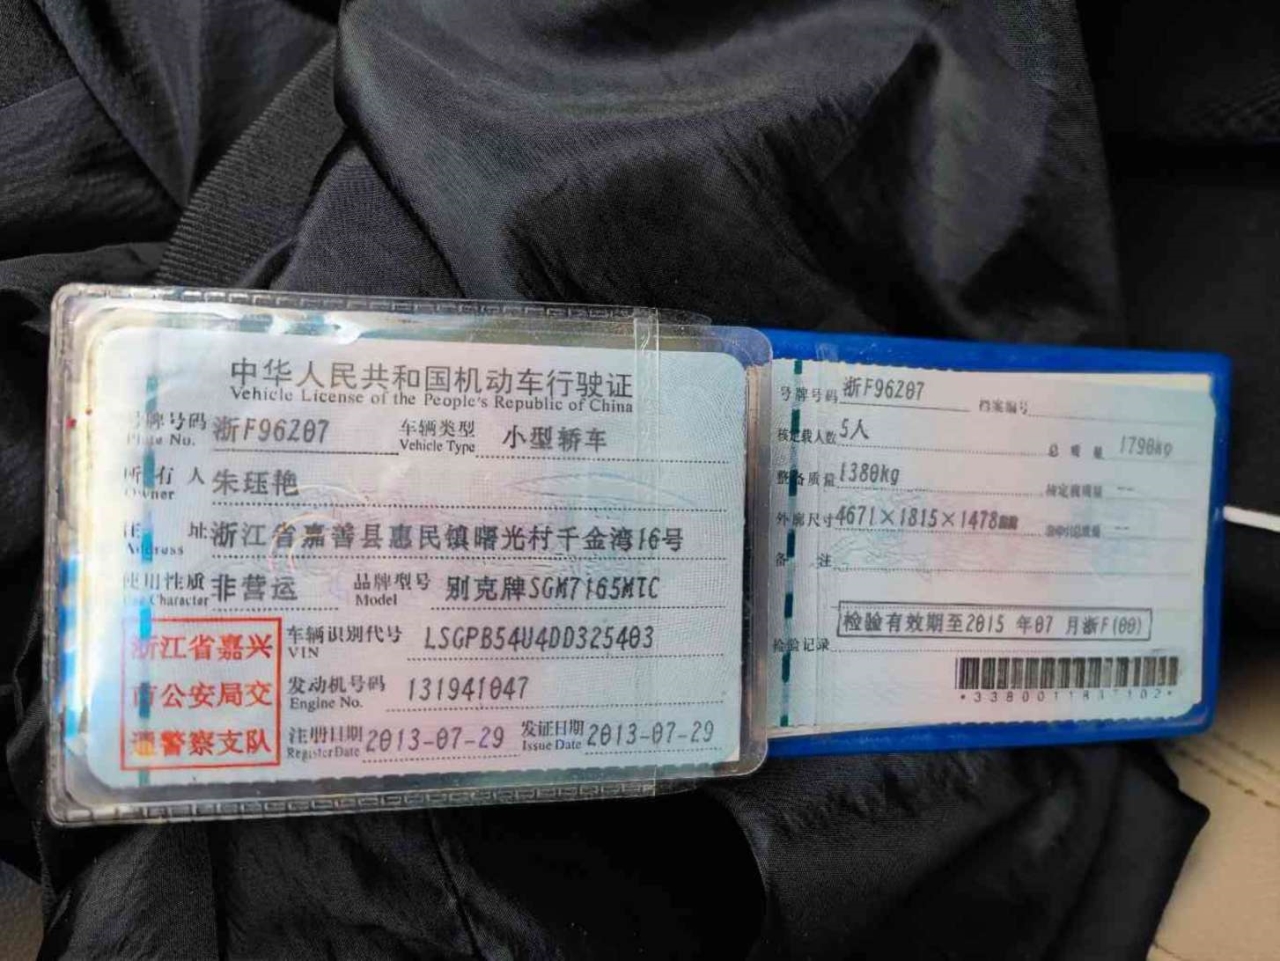 中华人民共和国机动车行驶证
Vehicle License of the People's Republic of China
号牌号码 浙F96Z07 车辆类型 小型轿车
Plate No. Vehicle Type
所有人 朱珏艳
Owner
住址 浙江省嘉善县惠民镇曙光村千金湾16号
Address
使用性质 非营运 品牌型号 别克牌SGM7165MTC
Use Character Model
浙江省嘉兴
市公安局交
通警察支队
车辆识别代号 LSGPB54U4DD325403
VIN
发动机号码 131941047
Engine No.
注册日期 2013-07-29 发证日期 2013-07-29
Register Date Issue Date
号牌号码 浙F96Z07 档案编号
核定载人数 5人 总质量 1790kg
整备质量 1380kg 核定载质量 --
外廓尺寸 4671×1815×1478
备注
检验有效期至2015 年07 月浙F(00)
检验记录